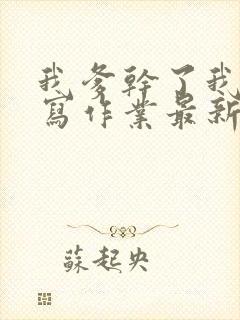 我爹幹了我
寫作業最新
蘇起央